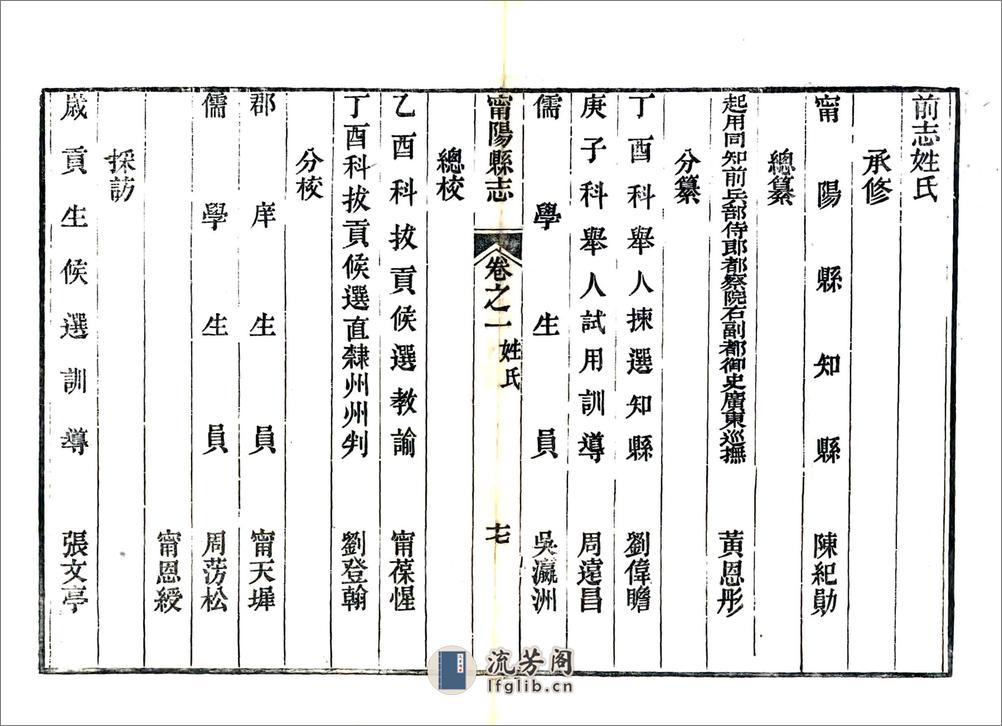 前志姓氏
承修
甯陽縣知縣 陳紀勛
總纂
起用同知前兵部侍郎都察院右副都御史廣東巡撫 黃恩彤
分纂
丁酉科舉人揀選知縣 劉偉瞻
庚子科舉人試用訓導 周遠昌
儒學生員 吳瀛洲
甯陽縣志 卷之一 姓氏 十七
總校
乙酉科拔貢候選教諭 甯葆惺
丁酉科拔貢候選直隸州州判 劉登翰
分校
郡庠生員 甯天墀
儒學生員 周蒡松
甯恩綬
採訪
歲貢生候選訓導 張文亭
流芳阁
lfglib.cn